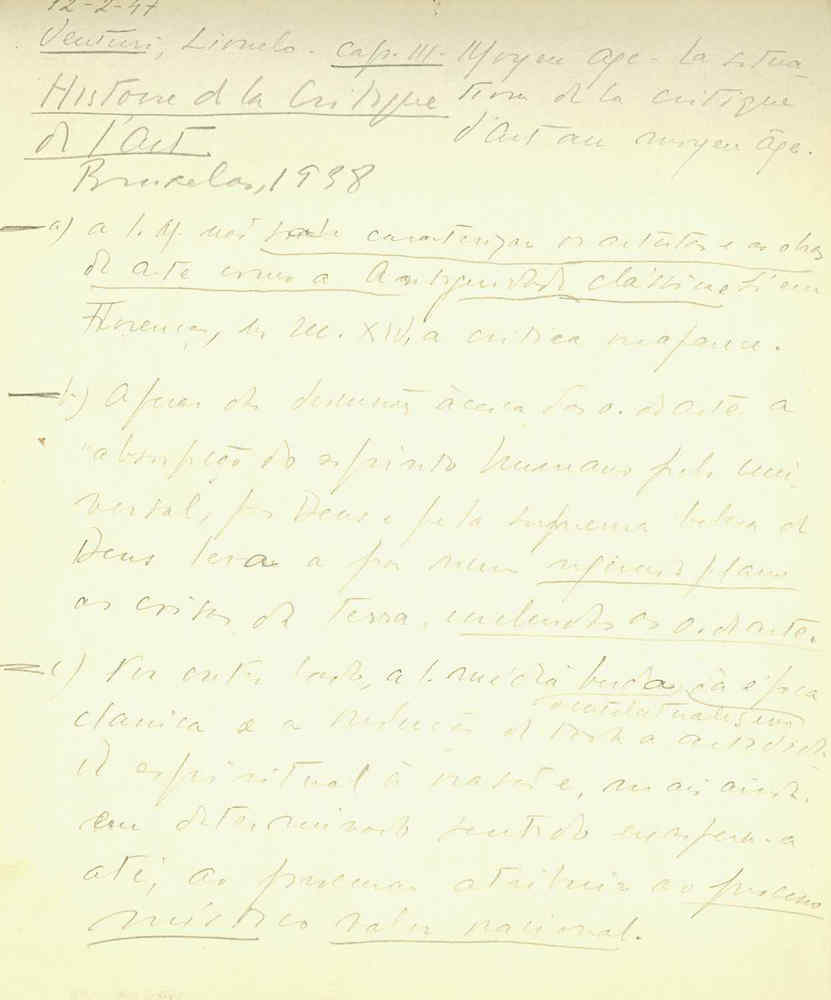 12-2-47
Venturi, Lionelo - cap. III - Moyen age - La situa-
Histoire de la Critique tion de la critique
de l'Art d'Art au moyen âge.
Bruxelas, 1938
a) a I. M. não sabe caracterizar os artistas e as obras
de arte como a Antiguidade clássica. Só em
Florença, no sec. XIV, a critica reaparece.
b) Apesar de acerca das o. de arte a
"absorpção do espirito humano pelo uni-
versal, por Deus e pela suprema beleza de
Deus leva a por num segundo plano
as coisas da terra, incluindo as o. de arte.
c) Por outro lado, a I. média herda da época
intelectualismo
classica e a redução de toda a actividade
espiritual à razão e, mais ainda,
em determinado sentido exagera-a
até, ao procurar atribuir ao processo
místico valor racional.